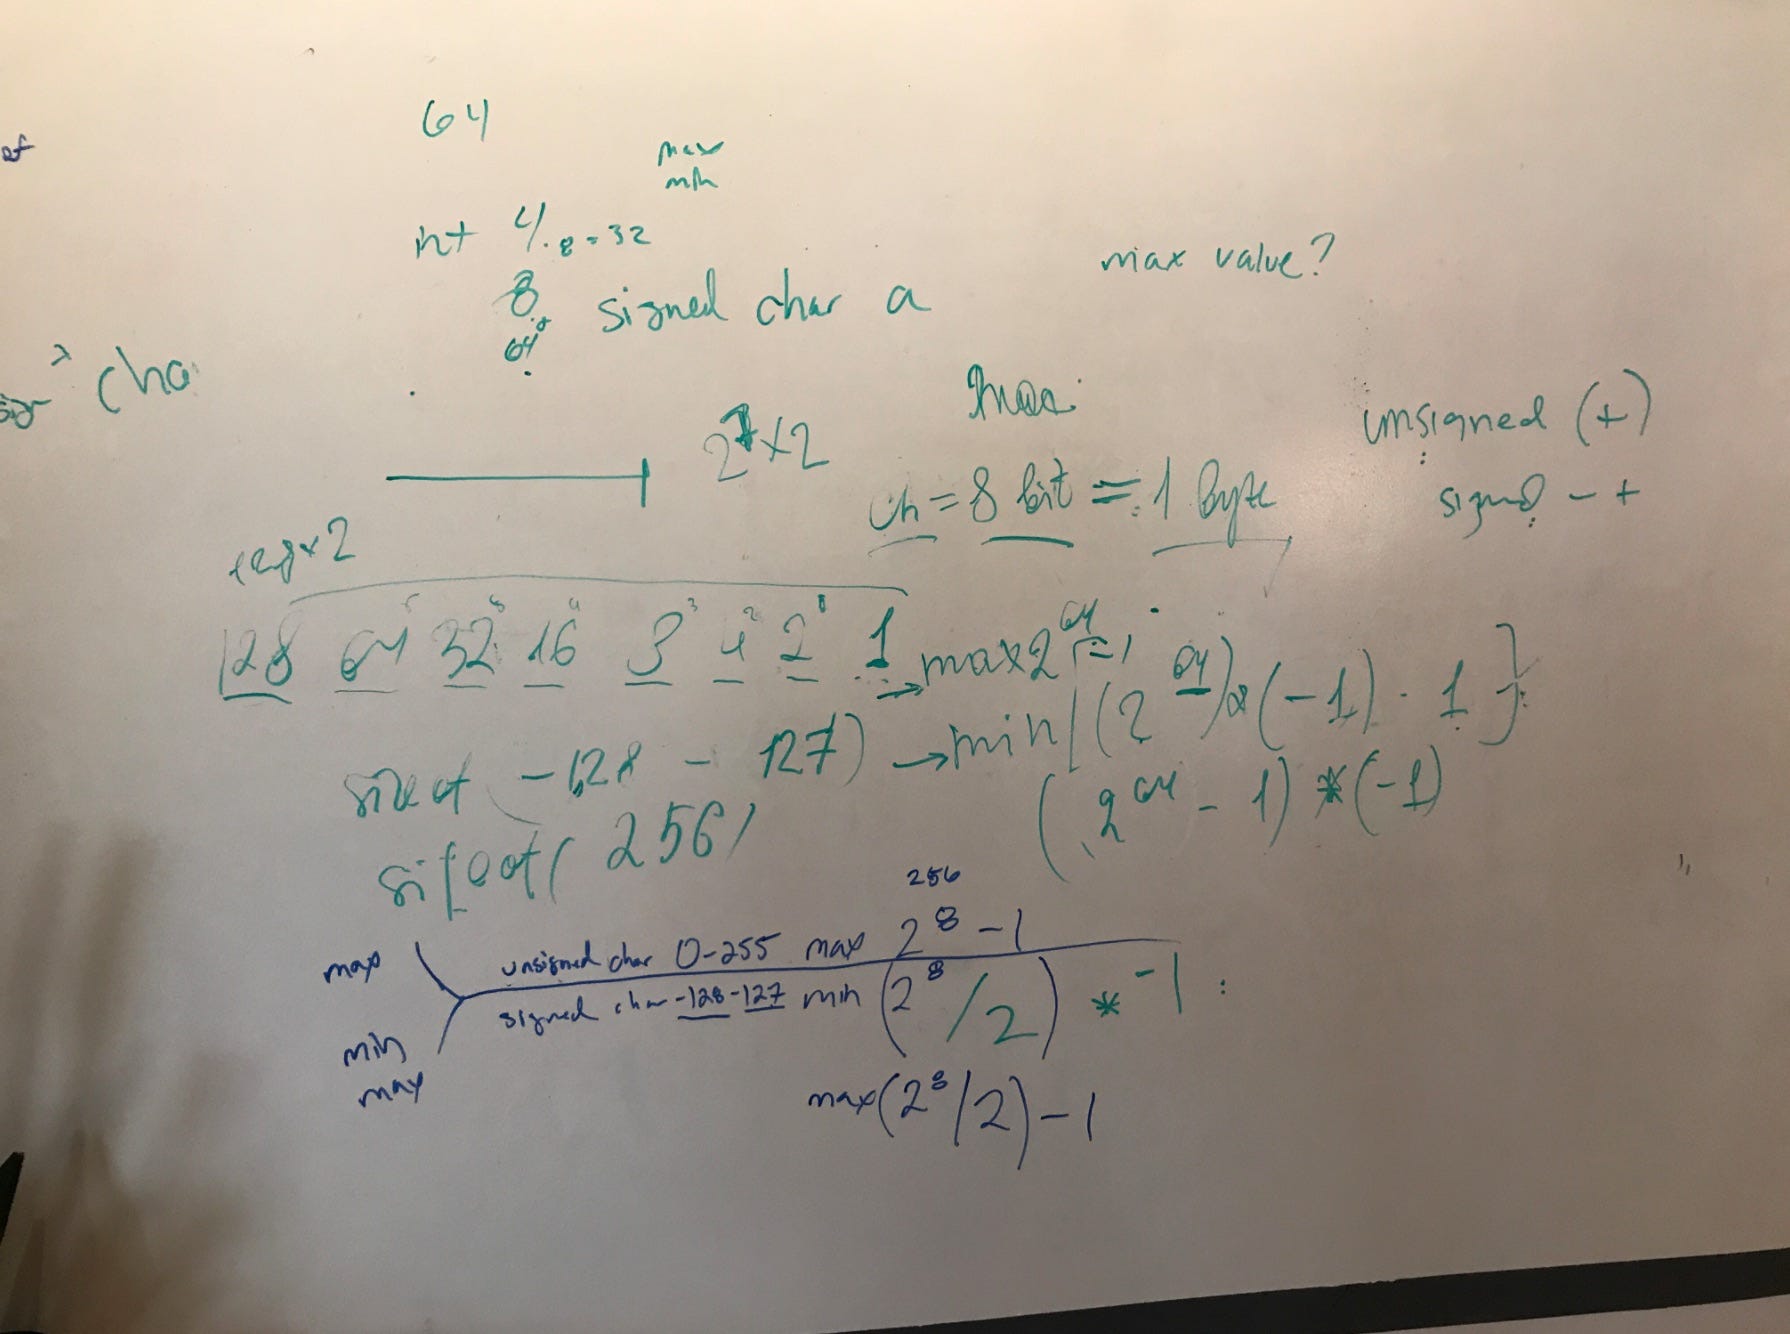 64
ef
max
min
int 4 . 8 = 32
8
64
signed char a
max value?
sign
cha
2^7 x 2
max
unsigned (+)
signed - +
ch = 8 bit = 1 byte
128 x 2
128 64 32 16 8 4 2 1
→ max 2^64 - 1
→ min [(2^64) * (-1) - 1]
(2^64 - 1) * (-1)
sizeof (-128 - 127)
sizeof( 256)
256
max
unsigned char 0-255 max 2^8 - 1
signed char -128 - 127 min (2^8 / 2) * -1
min
max
max (2^8 / 2) - 1